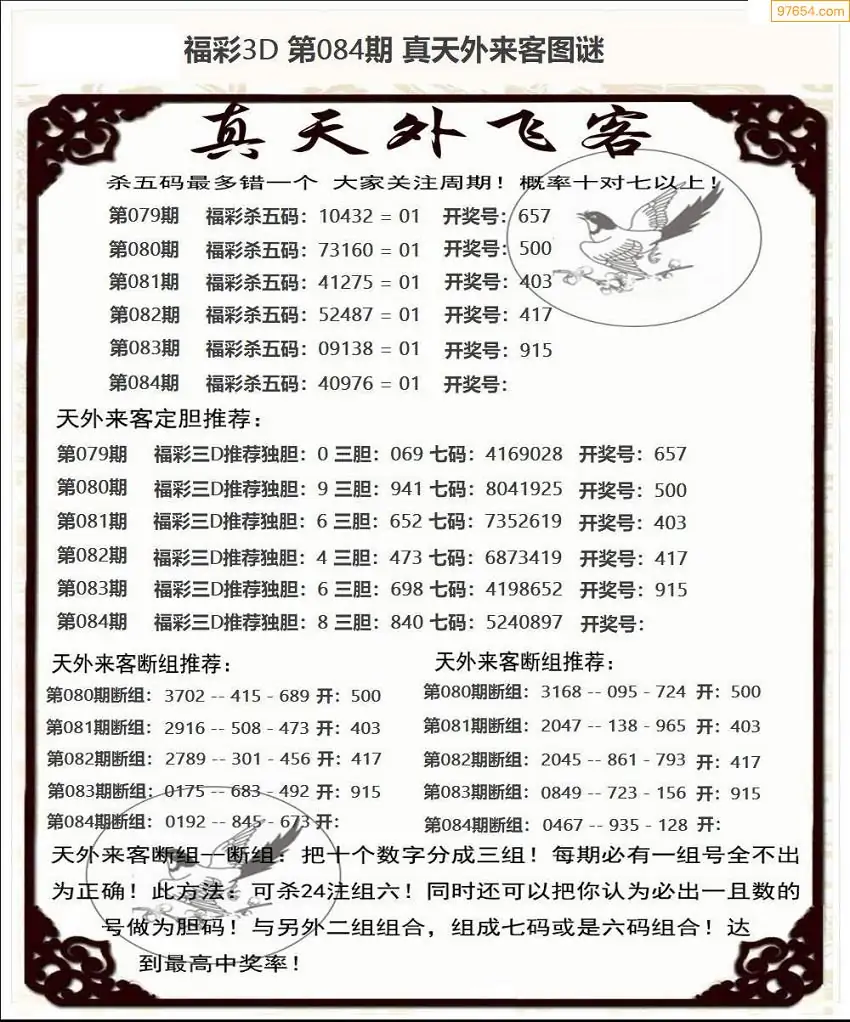 97654.com
福彩3D 第084期 真天外来客图谜
真天外飞客
杀五码最多错一个 大家关注周期！概率十对七以上！
第079期 福彩杀五码：10432 = 01 开奖号：657
第080期 福彩杀五码：73160 = 01 开奖号：500
第081期 福彩杀五码：41275 = 01 开奖号：403
第082期 福彩杀五码：52487 = 01 开奖号：417
第083期 福彩杀五码：09138 = 01 开奖号：915
第084期 福彩杀五码：40976 = 01 开奖号：
天外来客定胆推荐：
第079期 福彩三D推荐独胆：0 三胆：069 七码：4169028 开奖号：657
第080期 福彩三D推荐独胆：9 三胆：941 七码：8041925 开奖号：500
第081期 福彩三D推荐独胆：6 三胆：652 七码：7352619 开奖号：403
第082期 福彩三D推荐独胆：4 三胆：473 七码：6873419 开奖号：417
第083期 福彩三D推荐独胆：6 三胆：698 七码：4198652 开奖号：915
第084期 福彩三D推荐独胆：8 三胆：840 七码：5240897 开奖号：
天外来客断组推荐：
第080期断组：3702 -- 415 - 689 开：500
第081期断组：2916 -- 508 - 473 开：403
第082期断组：2789 -- 301 - 456 开：417
第083期断组：0175 -- 683 - 492 开：915
第084期断组：0192 -- 845 - 673 开：
天外来客断组推荐：
第080期断组：3168 -- 095 - 724 开：500
第081期断组：2047 -- 138 - 965 开：403
第082期断组：2045 -- 861 - 793 开：417
第083期断组：0849 -- 723 - 156 开：915
第084期断组：0467 -- 935 - 128 开：
天外来客断组一断组：把十个数字分成三组！每期必有一组号全不出
为正确！此方法：可杀24注组六！同时还可以把你认为必出一且数的
号做为胆码！与另外二组组合，组成七码或是六码组合！达
到最高中奖率！